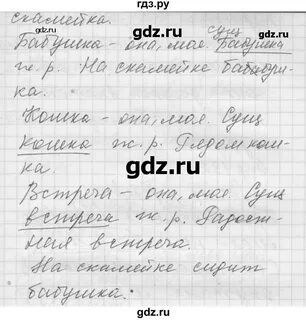 гдз.ру
скамейка.
Бабушка – она, моя. Сущ
Бабушка
ж. р. На скамейке бабуш-
ка.
Кошка – она, моя. Сущ
кошка ж. р. Рядом кош-
ка.
Встреча – она, моя. Сущ
встреча ж. р. Радост-
ная встреча.
На скамейке сидит
бабушка.
gdz.ru
gdz.ru
gdz.ru
gdz.ru
gdz.ru
gdz.ru